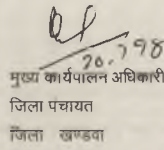 20.7.98
मुख्य कार्यपालन अधिकारी
जिला पंचायत
जिला खण्डवा